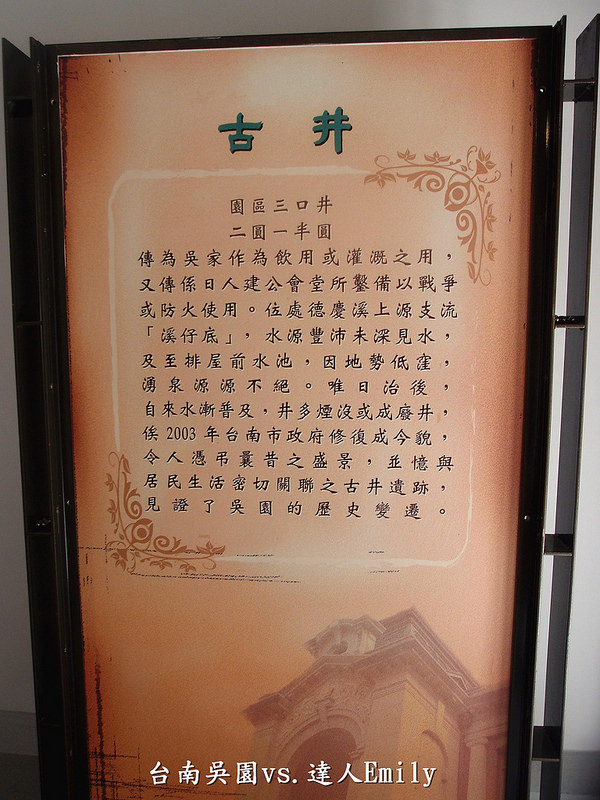 古井
園區三口井
二圓一半圓
傳為吳家作為飲用或灌溉之用，
又傳係日人建公會堂所鑿備以戰爭
或防火使用。位處德慶溪上源支流
「溪仔底」，水源豐沛未深見水，
及至排屋前水池，因地勢低窪，
湧泉源源不絕。唯日治後，
自來水漸普及，井多煙沒或成廢井，
俟2003年台南市政府修復成今貌，
令人憑弔曩昔之盛景，並憶與
居民生活密切關聯之古井遺跡，
見證了吳園的歷史變遷。
台南吳園vs.達人Emily